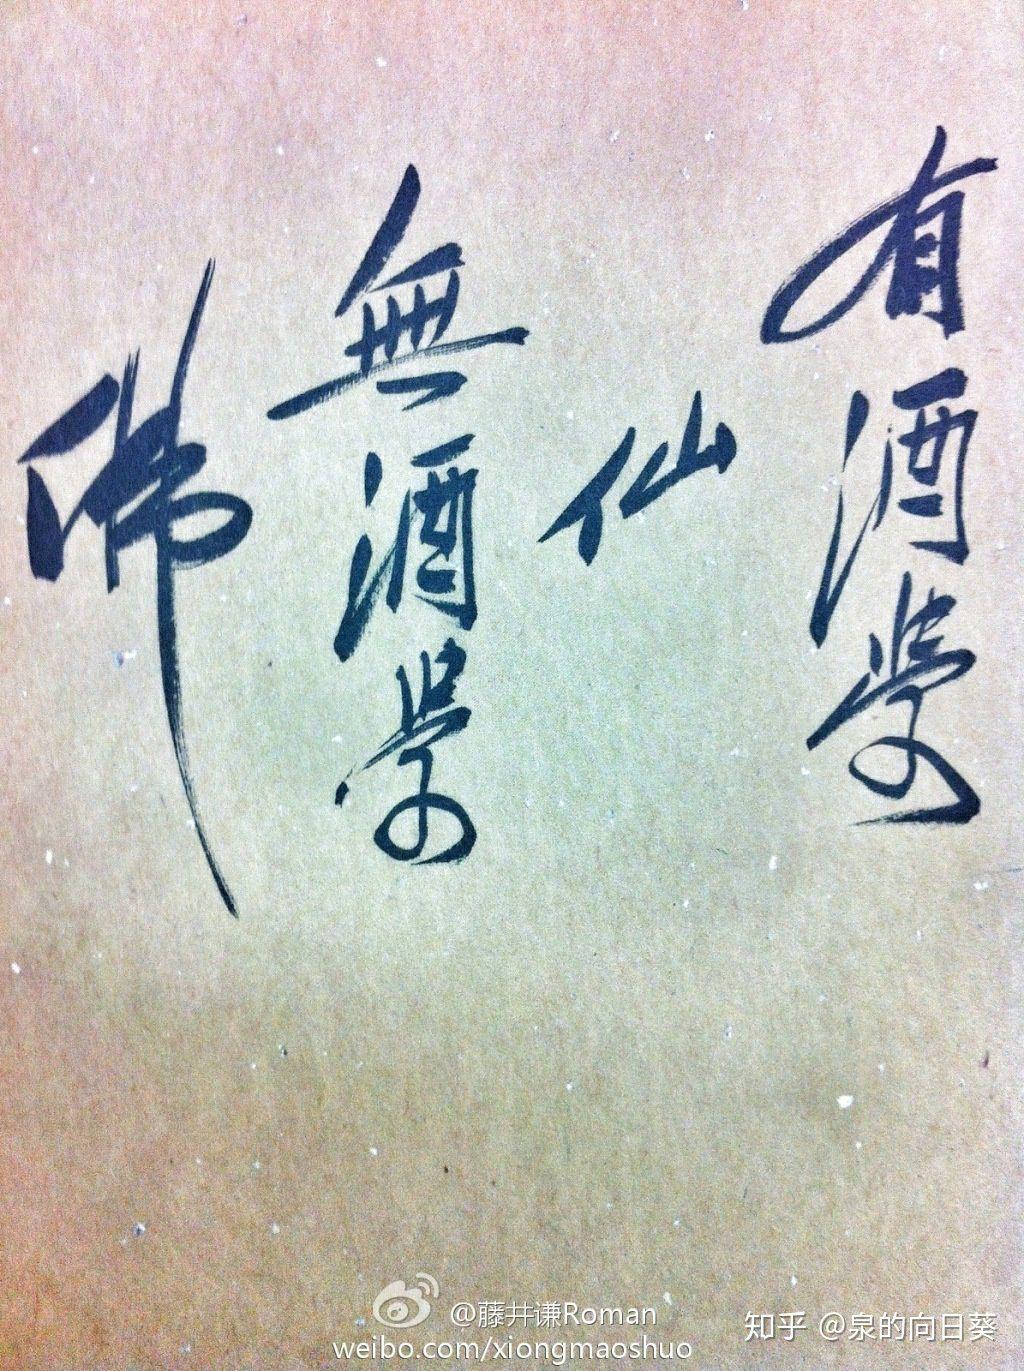 有酒学
仙
無酒学
佛
@藤井谦Roman
weibo.com/xiongmaoshuo
知乎 @泉的向日葵